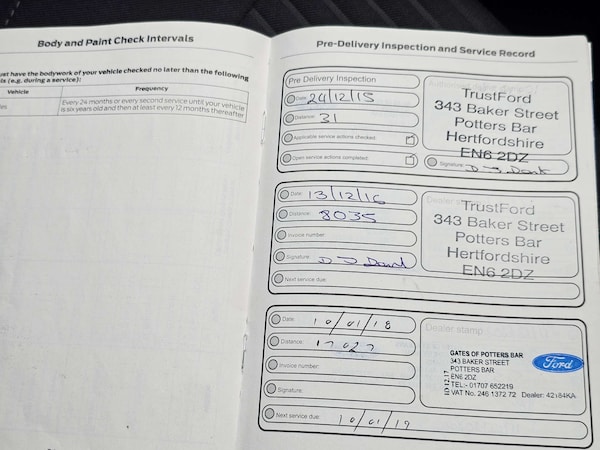 Body and Paint Check Intervals
ust have the bodywork of your vehicle checked no later than the following
ls (e.g. during a service):
Vehicle Frequency
les Every 24 months or every second service until your vehicle
is six years old and then at least every 12 months thereafter
Pre-Delivery Inspection and Service Record
Pre Delivery Inspection
Date: 24/12/15
Distance: 31
Applicable service actions checked:
Open service actions completed:
TrustFord
343 Baker Street
Potters Bar
Hertfordshire
EN6 2DZ
Signature:
Date: 13/12/16
Distance: 8035
Invoice number:
Signature:
Next service due:
TrustFord
343 Baker Street
Potters Bar
Hertfordshire
EN6 2DZ
Date: 10/01/18
Distance: 17027
Invoice number:
Signature:
Next service due: 10/01/19
Dealer stamp
GATES OF POTTERS BAR
343 BAKER STREET
POTTERS BAR
EN6 2DZ
TEL:- 01707 652219
VAT No. 246 1372 72 Dealer: 42184KA
ID 12.17
Ford